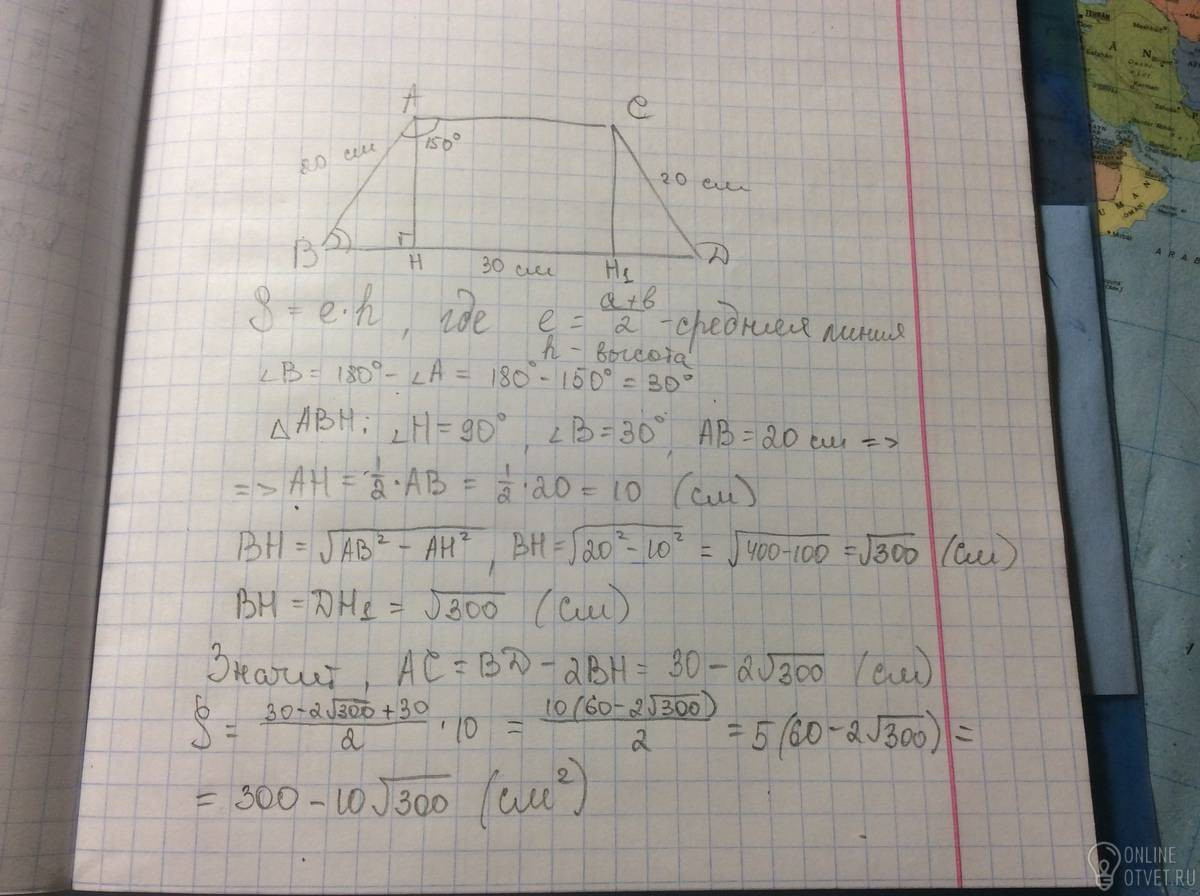 A C
20 см 150° 20 см
B H 30 см H₁ D
S = e·h, где e = (a+b)/2 - средняя линия
h - высота
∠B = 180° - ∠A = 180° - 150° = 30°
△ABH: ∠H = 90°, ∠B = 30°, AB = 20 см =>
=> AH = 1/2·AB = 1/2·20 = 10 (см)
BH = √(AB² - AH²), BH = √(20² - 10²) = √(400-100) = √300 (см)
BH = DH₁ = √300 (см)
Значит, AC = BD - 2BH = 30 - 2√300 (см)
S = (30 - 2√300 + 30)/2 · 10 = 10(60 - 2√300)/2 = 5(60 - 2√300) =
= 300 - 10√300 (см²)
ARAB
ONLINE
OTVET.RU